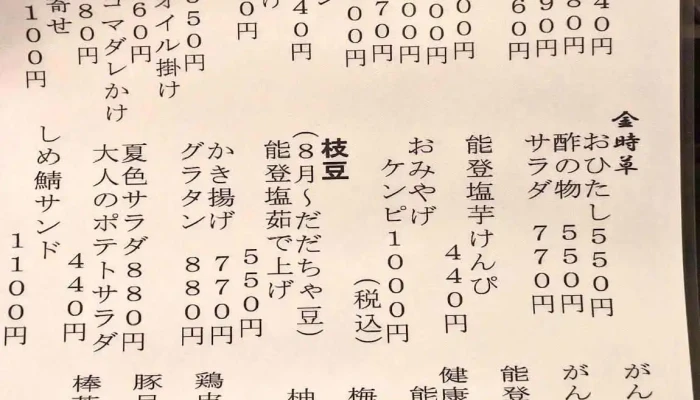 40円
80円
90円
60円
00円
00円
00円
70円
00円
40円
0円
50円
オイル掛け
60円
ゴマダレかけ
80円
寄せ
100円
金時草
おひたし550円
酢の物 550円
サラダ 770円
能登塩芋けんぴ
440円
おみやげ
ケンピ1000円
(税込)
枝豆
(8月~だだちゃ豆)
能登塩茹で上げ
550円
かき揚げ 770円
グラタン 880円
夏色サラダ880円
大人のポテトサラダ
440円
しめ鯖サンド
1100円
がん
がん
能登
健康
能
梅
柚
鶏皮
豚
棒